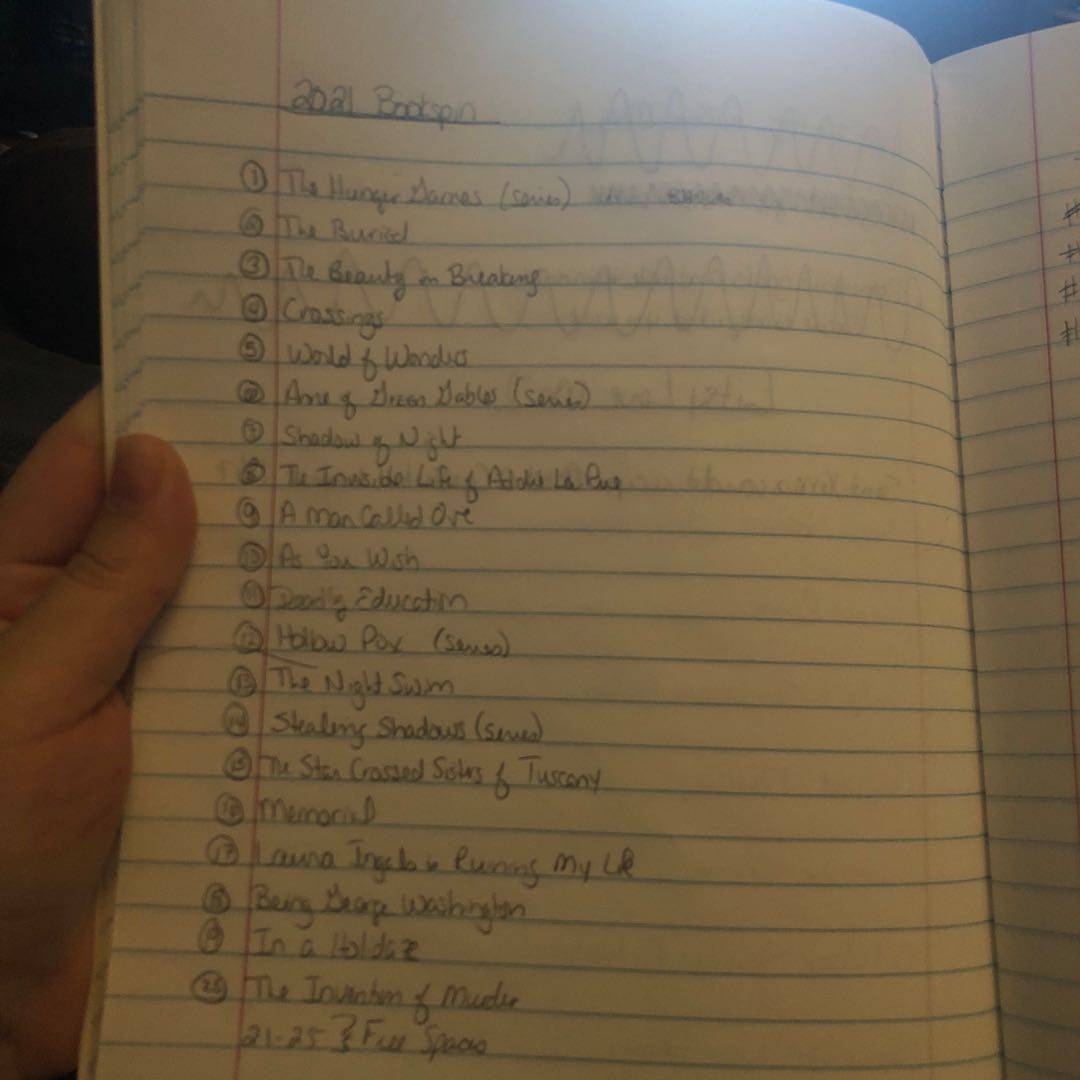 2021 Bookspin
① The Hunger Games (series)
② The Buried
③ The Beauty in Breaking
④ Crossings
⑤ World of Wonders
⑥ Anne of Green Gables (series)
⑦ Shadow of Night
⑧ The Invisible Life of Addie La Rue
⑨ A Man Called Ove
⑩ As You Wish
⑪ Deadly Education
⑫ Hollow Pox (series)
⑬ The Night Swim
⑭ Stealing Shadows (series)
⑮ The Star Crossed Sisters of Tuscany
⑯ Memorial
⑰ Laura Ingalls is Ruining My Life
⑱ Being George Washington
⑲ In a Holidaze
⑳ The Invention of Murder
21-25 } Free Spaces